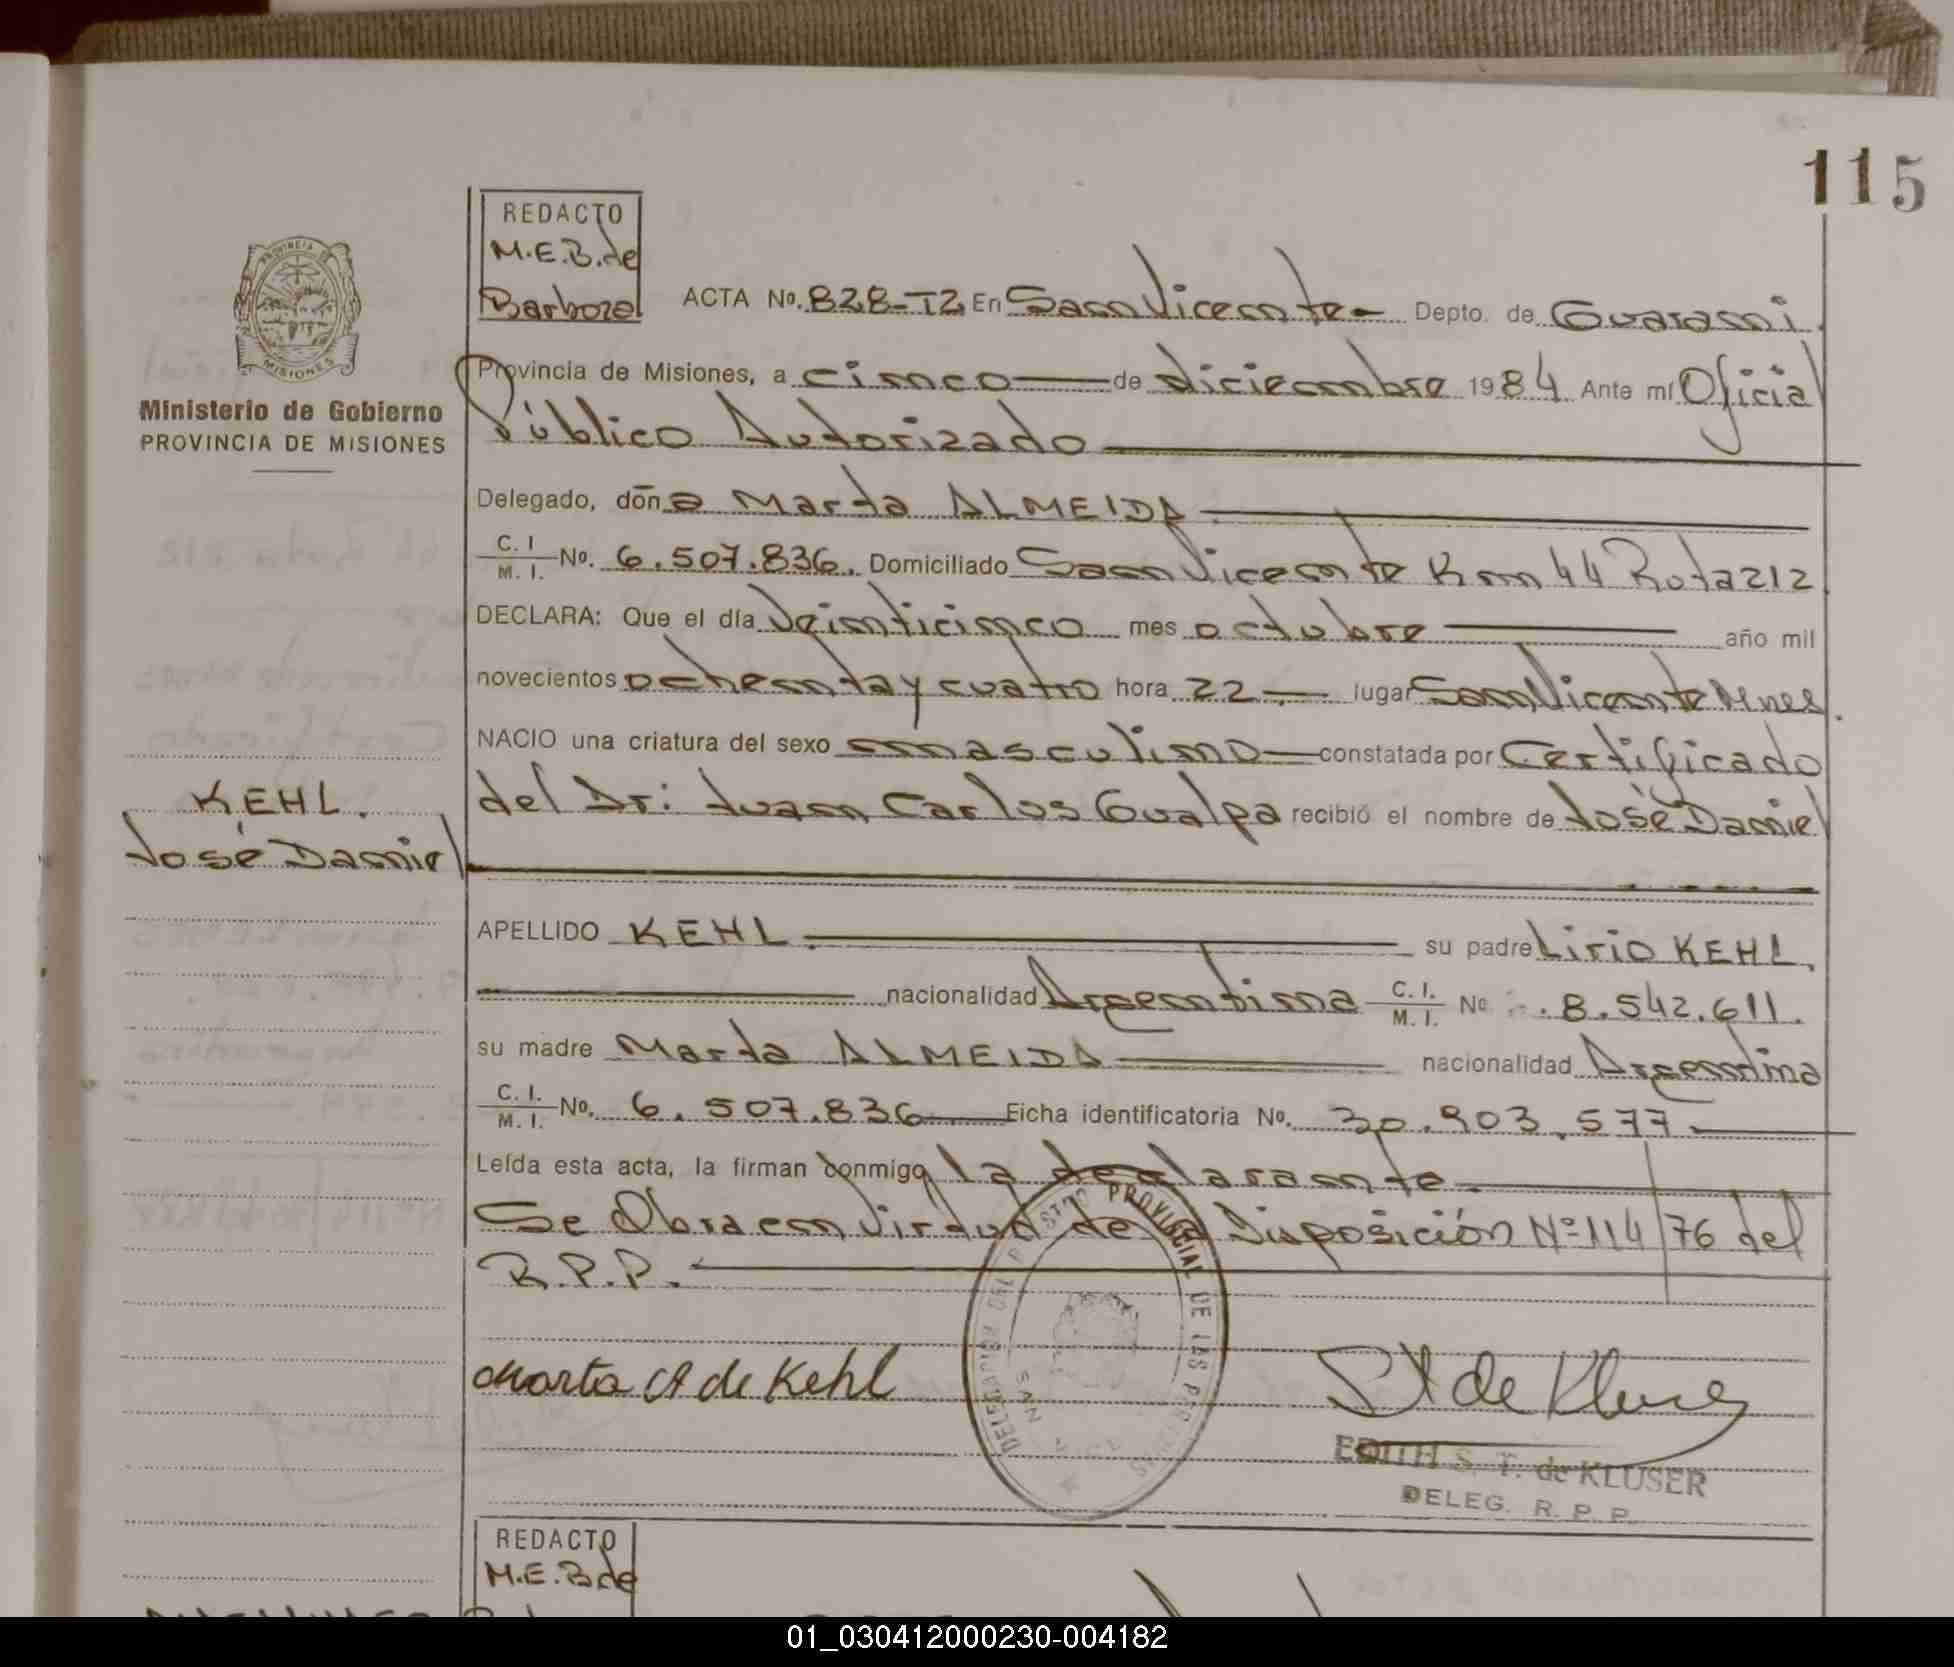 115
REDACTO
M.E.B. de
Barboza
ACTA No. 828-T2 En San Vicente Depto. de Guarani
Provincia de Misiones, a cinco de diciembre 1984 Ante mí Oficial
Público Autorizado
Ministerio de Gobierno
PROVINCIA DE MISIONES
Delegado, doña Marta ALMEIDA
C. I. / M. I. No. 6.507.836. Domiciliado San Vicente Km 44 Ruta 212
DECLARA: Que el día Veinticinco mes octubre año mil
novecientos ochenta y cuatro hora 22 lugar San Vicente Mnes.
NACIO una criatura del sexo masculino constatada por Certificado
del Dr: Juan Carlos Gualpa recibió el nombre de José Daniel
KEHL.
José Daniel
APELLIDO KEHL. su padre Lirio KEHL.
nacionalidad Argentina C. I. / M. I. No 8.542.611.
su madre Marta ALMEIDA nacionalidad Argentina
C. I. / M. I. No. 6.507.836 Ficha identificatoria No. 30.903.577
Leída esta acta, la firman conmigo la declarante.
Se Obra en Virtud de la Disposición Nº 114/76 del
R.P.P.
PROVINCIAL DE LAS PERSONAS
Marta A de Kehl
de Kluser
EDITH S. T. de KLUSER
DELEG. R. P. P.
REDACTO
M.E.B de
01_030412000230-004182